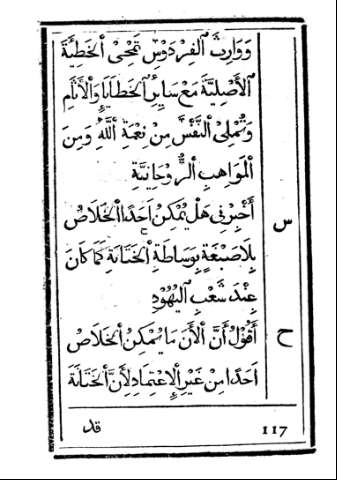 وَوَارِثَ ٱلفِرْدَوْسِ تَمْحِىٰ ٱلخَطِيَّةَ
ٱلأَصْلِيَّةَ مَعَ سَايِرِ ٱلخَطَايَا وَٱلأَثَامِ
وَتُمْلِىٰ ٱلنَّفْسَ مِنْ نِعْمَةِ ٱللَّهِ وَمِنَ
ٱلْمَوَاهِبِ ٱلرُّوحَانِيَّةِ
س أَخْبِرْنِى هَلْ يُمْكِنُ اَحَدًا ٱلْخَلَاصُ
بِلَا صِبْغَةٍ بِوَسَاطَةِ ٱلْخَتَانَةِ كَمَا كَانَ
عِنْدَ شَعْبِ ٱليَهُودِ
ح أَقُولُ أَنَّ ٱلأَنَ مَا يُمْكِنُ ٱلخَلَاصُ
اَحَدًا مِنْ غَيْرِ ٱلإِعْتِمَادِ لِأَنَّ ٱلخَتَانَةَ
قد
117